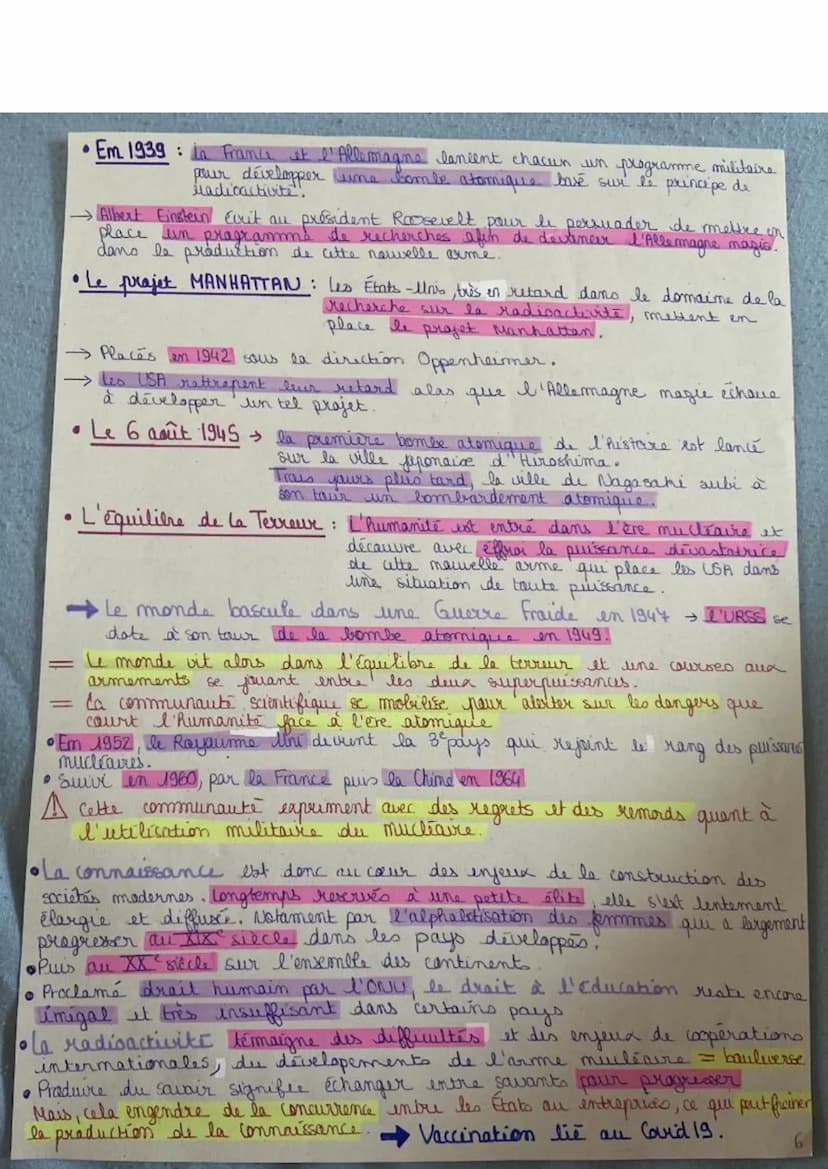 • En 1939 : la France et l'Allemagne lancent chacun un programme militaire
pour développer une bombe atomique basé sur le principe de
radioactivité.
→ Albert Einstein écrit au président Roosevelt pour le persuader de mettre en
place un programme de recherches afin de devancer l'Allemagne nazie.
dans la production de cette nouvelle arme.
• Le projet MANHATTAN : Les États-Unis, très en retard dans le domaine de la
recherche sur la radioactivité, mettent en
place le projet Manhattan.
→ Placés en 1942 sous la direction Oppenheimer.
→ Les USA rattrapent leur retard alos que l'Allemagne nazie échoue
à développer un tel projet.
• Le 6 août 1945 → la première bombe atomique de l'histoire est lancé
sur la ville japonaise d'Hiroshima.
Trois jours plus tard, la ville de Nagasaki subi à
son tour un bombardement atomique.
• L'équilibre de la Terreur : L'humanité est entré dans l'ère nucléaire et
découvre avec effroi la puissance dévastatrice
de cette nouvelle arme qui place les USA dans
une situation de toute puissance.
→ Le monde bascule dans une Guerre Froide en 1947 → l'URSS se
dote à son tour de la bombe atomique en 1949.
= Le monde vit alors dans l'équilibre de la terreur et une courses aux
armements se jouant entre les deux superpuissances.
= La communauté scientifique se mobilise pour alerter sur les dangers que
court l'Humanité face à l'ère atomique
• En 1952, le Royaume Uni devient la 3e pays qui rejoint le rang des puissances
nucléaires.
• Suivi en 1960, par la France puis la Chine en 1964
⚠ Cette communauté expriment avec des regrets et des remords quant à
l'utilisation militaire du nucléaire.
• La connaissance est donc au cœur des enjeux de la construction des
sociétés modernes. Longtemps reservés à une petite élite, elle s'est lentement
élargie et diffusée. Notament par l'alphabétisation des femmes qui a largement
progresser au XIXe siècle dans les pays développés.
• Puis au XXe siècle sur l'ensemble des continents.
• Proclamé droit humain par l'ONU, le droit à l'éducation reste encore
inégal et très insuffisant dans certains pays
• La radioactivité témoigne des difficultés et des enjeux de coopérations
internationales, du développements de l'arme nucléaire = bouleverse
• Produire du savoir signifie échanger entre savants pour progresser
Mais, cela engendre de la concurrence entre les États ou entreprises, ce qui peut freiner
la production de la connaissance. → Vaccination lié au Covid 19.
6